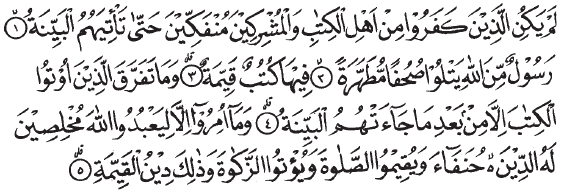 لَمْ يَكُنِ الَّذِيْنَ كَفَرُوْا مِنْ اَهْلِ الْكِتٰبِ وَالْمُشْرِكِيْنَ مُنْفَكِّيْنَ حَتّٰى تَاْتِيَهُمُ الْبَيِّنَةُ ۙ﴿۱﴾
رَسُوْلٌ مِّنَ اللّٰهِ يَتْلُوْا صُحُفًا مُّطَهَّرَةً ۙ﴿۲﴾ فِيْهَا كُتُبٌ قَيِّمَةٌ ؕ﴿۳﴾ وَمَا تَفَرَّقَ الَّذِيْنَ اُوْتُوا
الْكِتٰبَ اِلَّا مِنْۢ بَعْدِ مَا جَآءَتْهُمُ الْبَيِّنَةُ ؕ﴿۴﴾ وَمَاۤ اُمِرُوْۤا اِلَّا لِيَعْبُدُوا اللّٰهَ مُخْلِصِيْنَ
لَهُ الدِّيْنَ ۙ۬ حُنَفَآءَ وَيُقِيْمُوا الصَّلٰوةَ وَيُؤْتُوا الزَّكٰوةَ وَذٰلِكَ دِيْنُ الْقَيِّمَةِ ؕ﴿۵﴾